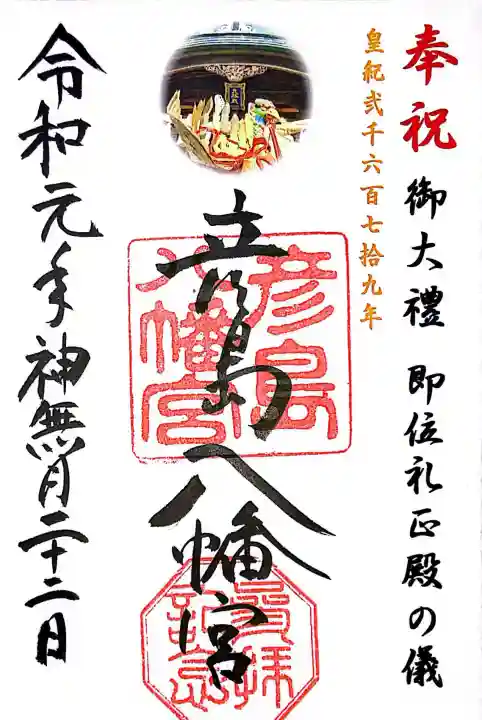 奉祝 御大禮 即位礼正殿の儀
皇紀弐千六百七拾九年
彦島八幡宮
彦島
八幡宮
参拝
記念
令和元年神無月二十二日